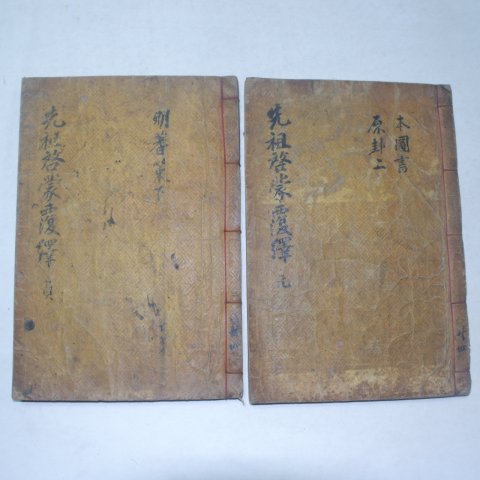 先祖啓蒙覆繹 貞
明蓍策下
先祖啓蒙覆繹 元
本圖書
原卦上